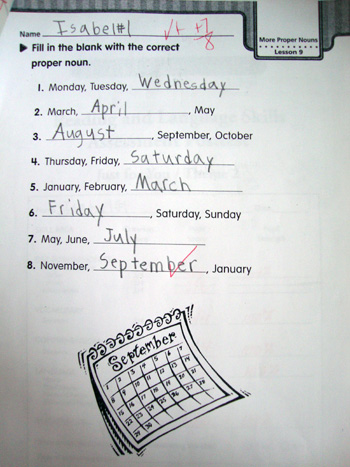 Name Isabel #1 √+ +7/8
More Proper Nouns
Lesson 9
▶ Fill in the blank with the correct
proper noun.
1. Monday, Tuesday, Wednesday
2. March, April, May
3. August, September, October
4. Thursday, Friday, saturday
5. January, February, March
6. Friday, Saturday, Sunday
7. May, June, July
8. November, September, January
September
1 2 3 4 5 6 7
8 9 10 11 12 13 14
15 16 17 18 19 20 21
22 23 24 25 26 27 28
29 30